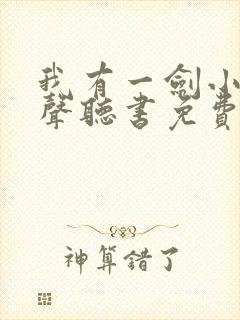 我有一劍小
聲聽書免費
神算錯了